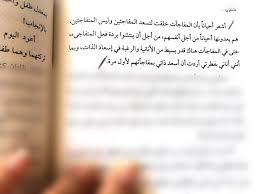 أشعر أحياناً بأن المفاجآت خلقت لتسعد المفاجئين وليس المتفاجئين،
هم يعدونها أحياناً من أجل أنفسهم، من أجل أن ينتشوا بردة فعل المتفاجئ،
حتى في المفاجآت هناك قدر بسيط من الأنانية والرغبة في إسعاد الذات، وبما
أني أناني بفطرتي أردت أن أسعد ذاتي بمفاجأتهم لأول مرة.
بمعدل طفل
بالإنجاب!
أعود اليوم
تركتهما وهما